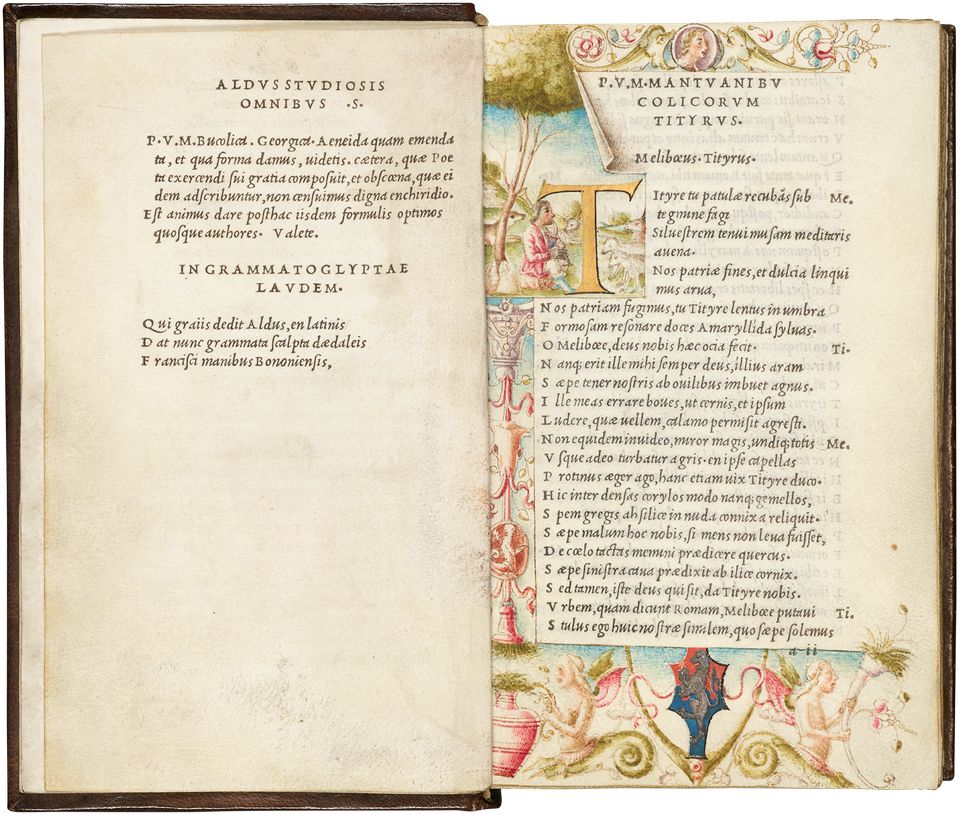 ALDVS STVDIOSIS
OMNIBVS ·S·
P·V·M·Bucolica·Georgica·Aeneida quam emenda
ta, et qua forma damus, uidetis. cætera, quæ Poe
ta exercendi sui gratia composuit, et obscœna, quæ ei
dem adscribuntur, non censuimus digna enchiridio.
Est animus dare posthac iisdem formulis optimos
quosque authores· Valete.
IN GRAMMATOGLYPTAE
LAVDEM·
Qui graiis dedit Aldus, en latinis
Dat nunc grammata scalpta dædaleis
Francisci manibus Bononiensis,
P·V·M·MANTVANI BV
COLICORVM
TITYRVS·
Melibœus·Tityrus·
TItyre tu patulæ recubãs sub Me.
tegmine fagi
Siluestrem tenui musam meditaris
auena·
Nos patriæ fines, et dulcia linqui
mus arua,
Nos patriam fugimus, tu Tityre lentus in umbra
Formosam resonare doces Amaryllida syluas·
O Melibœe, deus nobis hæc ocia fecit· Ti.
Nanq; erit ille mihi semper deus, illius aram
Sæpe tener nostris ab ouilibus imbuet agnus·
Ille meas errare boues, ut cernis, et ipsum
Ludere, quæ uellem, calamo permisit agresti·
Non equidem inuideo, miror magis, undiq; totis Me.
Vsque adeo turbatur agris·en ipse capellas
Protinus æger ago, hanc etiam uix Tityre duco·
Hic inter densas corylos modo nanq; gemellos,
Spem gregis ah silice in nuda connixa reliquit·
Sæpe malum hoc nobis, si mens non leua fuisset,
De cœlo tactas memini prædicere quercus·
Sæpe sinistra caua prædixit ab ilice cornix.
Sed tamen, iste deus qui sit, da Tityre nobis.
Vrbem, quam dicunt Romam, Melibœe putaui Ti.
Stulus ego huic nostræ similem, quo sæpe solemus
a ii